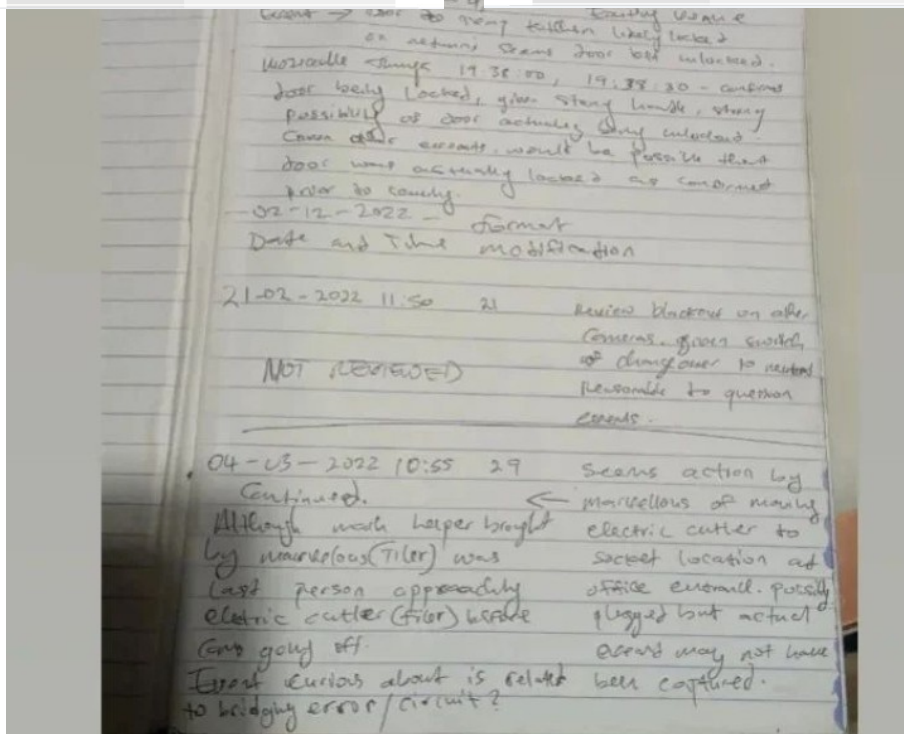 Event → door to temp kitchen likely locked
on return, seems door not unlocked.
19:38:00, 19:38:20 - confirms
door being locked, given strong handle, strong
possibility of door actually being unlocked.
Given other events, would be possible that
door was actually locked as confirmed
prior to
02-12-2022 - format
Date and Time modification
21-02-2022 11:50 21
NOT REVIEWED
Review blackout on other
cameras, given switch
of changeover to neutral
reasonable to question
events.
04-03-2022 10:55 29
Continued.
Although mark helper brought
by marvelous (Tiler) was
last person approaching
electric cutler (filer) before
cams going off.
Event curious about is related
to bridging error/circuit?
Seems action by
← marvellous of moving
electric cutler to
socket location at
office entrance. possibly
plugged but actual
event may not have
been captured.